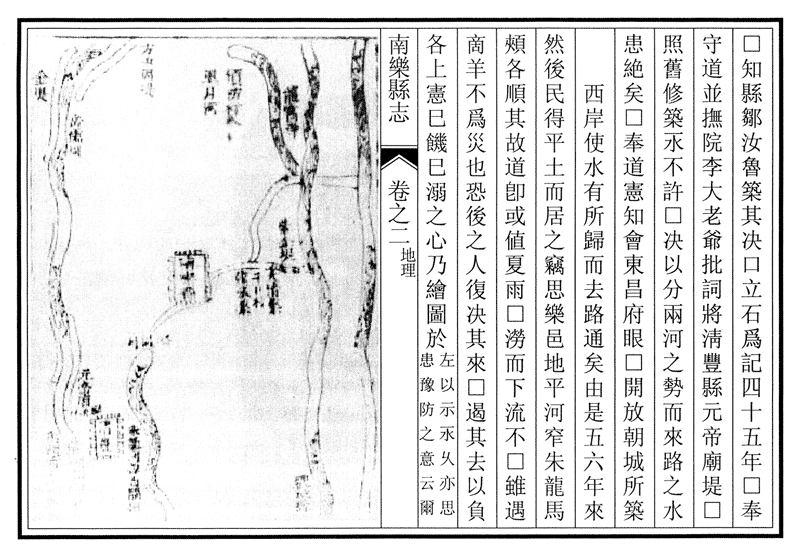 □知縣鄒汝魯築其决口立石爲記四十五年□奉
守道並撫院李大老爺批詞將淸豐縣元帝廟堤□
照舊修築永不許□决以分兩河之勢而來路之水
患絶矣□奉道憲知會東昌府眼□開放朝城所築
西岸使水有所歸而去路通矣由是五六年來
然後民得平土而居之竊思樂邑地平河窄朱龍馬
頰各順其故道卽或値夏雨□澇而下流不□雖遇
啇羊不爲災也恐後之人復决其來□遏其去以負
各上憲巳饑巳溺之心乃繪圖於
左以示永久亦思
患豫防之意云爾
南樂縣志
卷之二
地理